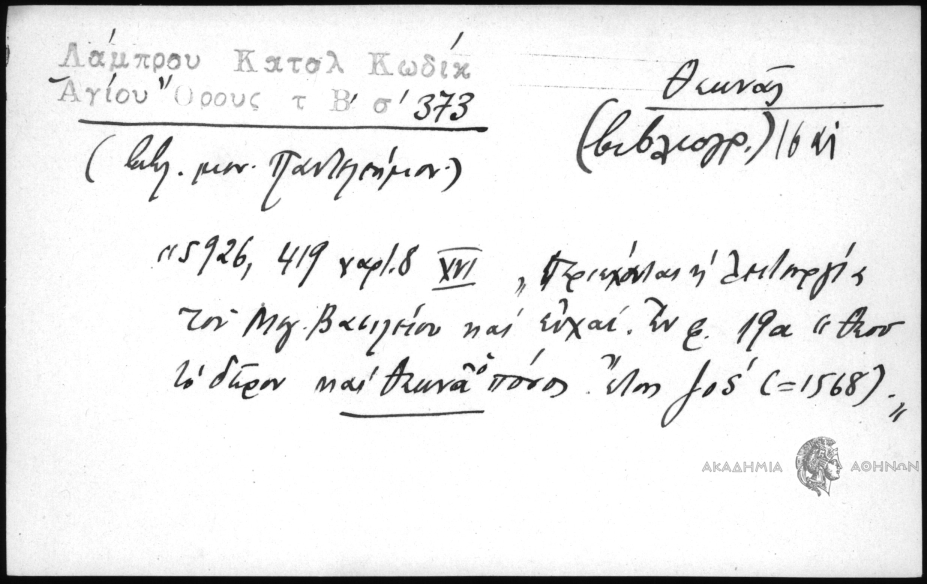 Λάμπρου Καταλ Κωδίκ
Ἁγίου Ὄρους τ Β' σ' 373
Θωνᾶς
(βιβλιογρ.) 16 αἰ
(βιβλ. μον. Παντελεήμον.)
"5926, 419 χαρτ. 8 XVI „ Περιέχονται ἡ λειτουργία
τοῦ Μεγ. Βασιλείου καὶ εὐχαί. Ἐν φ. 19α "Θεοῦ
τὸ δῶρον καὶ Θωνᾶ ὁ πόνος. Ἔτος ζοδ' (=1568)."
ΑΚΑΔΗΜΙΑ ΑΘΗΝΩΝ